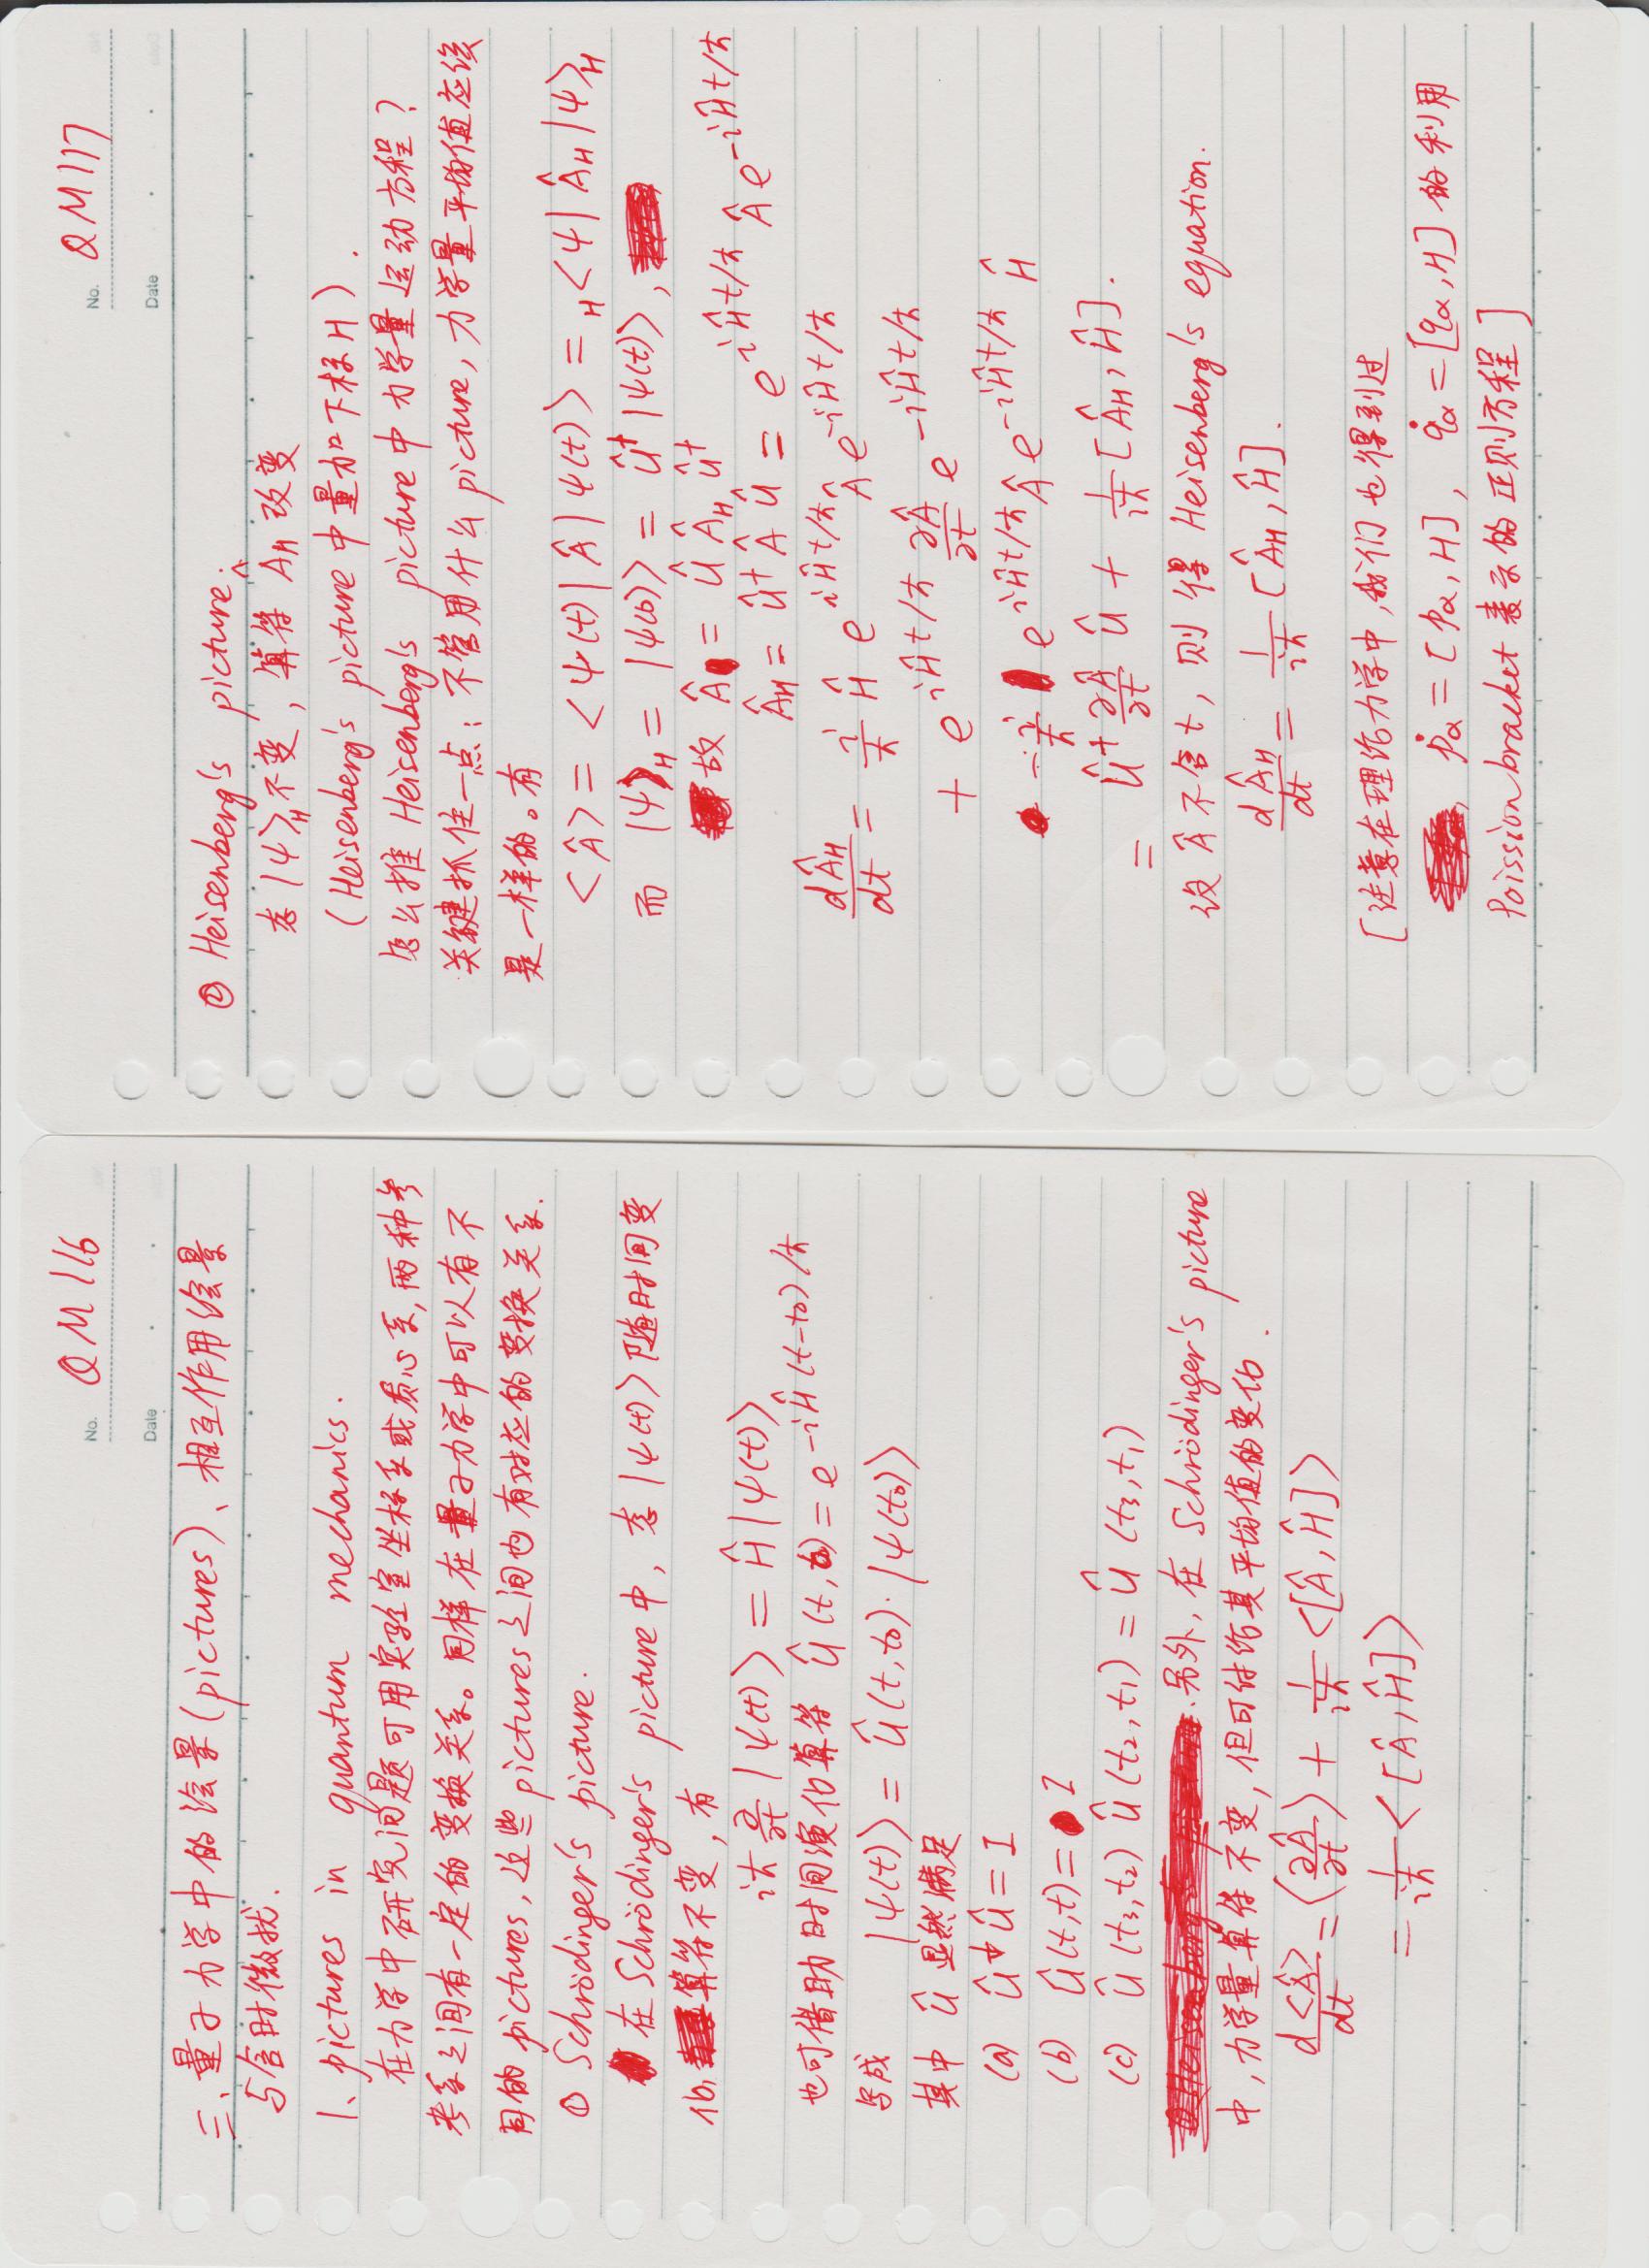 No. QM116
Date
三、量子力学中的绘景(pictures)、相互作用绘景
与含时微扰.
1、pictures in quantum mechanics.
在力学中研究问题可用实验室坐标系或质心系,两种参
考系之间有一定的变换关系。同样在量子力学中可以有不
同的pictures,这些pictures之间也有对应的变换关系.
① Schrödinger's picture.
在Schrödinger's picture中,态|ψ(t)>随时间变
化,算符不变,有
iħ ∂/∂t |ψ(t)> = Ĥ|ψ(t)>
也可借助时间演化算符 Û(t,t₀)= e^{-iĤ(t-t₀)/ħ}
写成 |ψ(t)> = Û(t,t₀)·|ψ(t₀)>
其中 Û 显然满足
(a) Û†Û = I
(b) Û(t,t)= I
(c) Û(t₃,t₂) Û(t₂,t₁) = Û(t₃,t₁)
另外,在Schrödinger's picture
中,力学量算符不变,但可讨论其平均值的变化.
d<Â>/dt = <∂Â/∂t> + 1/iħ <[Â,Ĥ]>
= 1/iħ <[Â,Ĥ]>
No. QM117
Date
② Heisenberg's picture.
态|ψ>_H不变,算符Â_H改变
(Heisenberg's picture中量加下标H).
怎么推Heisenberg's picture中力学量运动方程?
关键抓住一点:不管用什么picture,力学量平均值应该
是一样的。有
<Â> = <ψ(t)|Â|ψ(t)> = _H<ψ|Â_H|ψ>_H
而 |ψ>_H = |ψ(0)> = Û†|ψ(t)>,
故 Â = Û Â_H Û†
Â_H = Û†ÂÛ = e^{iĤt/ħ} Â e^{-iĤt/ħ}
dÂ_H/dt = i/ħ Ĥ e^{iĤt/ħ} Â e^{-iĤt/ħ}
+ e^{iĤt/ħ} ∂Â/∂t e^{-iĤt/ħ}
- i/ħ e^{iĤt/ħ} Â e^{-iĤt/ħ} Ĥ
= Û† ∂Â/∂t Û + 1/iħ [Â_H,Ĥ].
设Â不含t,则得Heisenberg's equation.
dÂ_H/dt = 1/iħ [Â_H,Ĥ].
[注意在理论力学中,我们也得到过
ṗ_α = [p_α,H], q̇_α = [q_α,H]的利用
Poission bracket表示的正则方程]